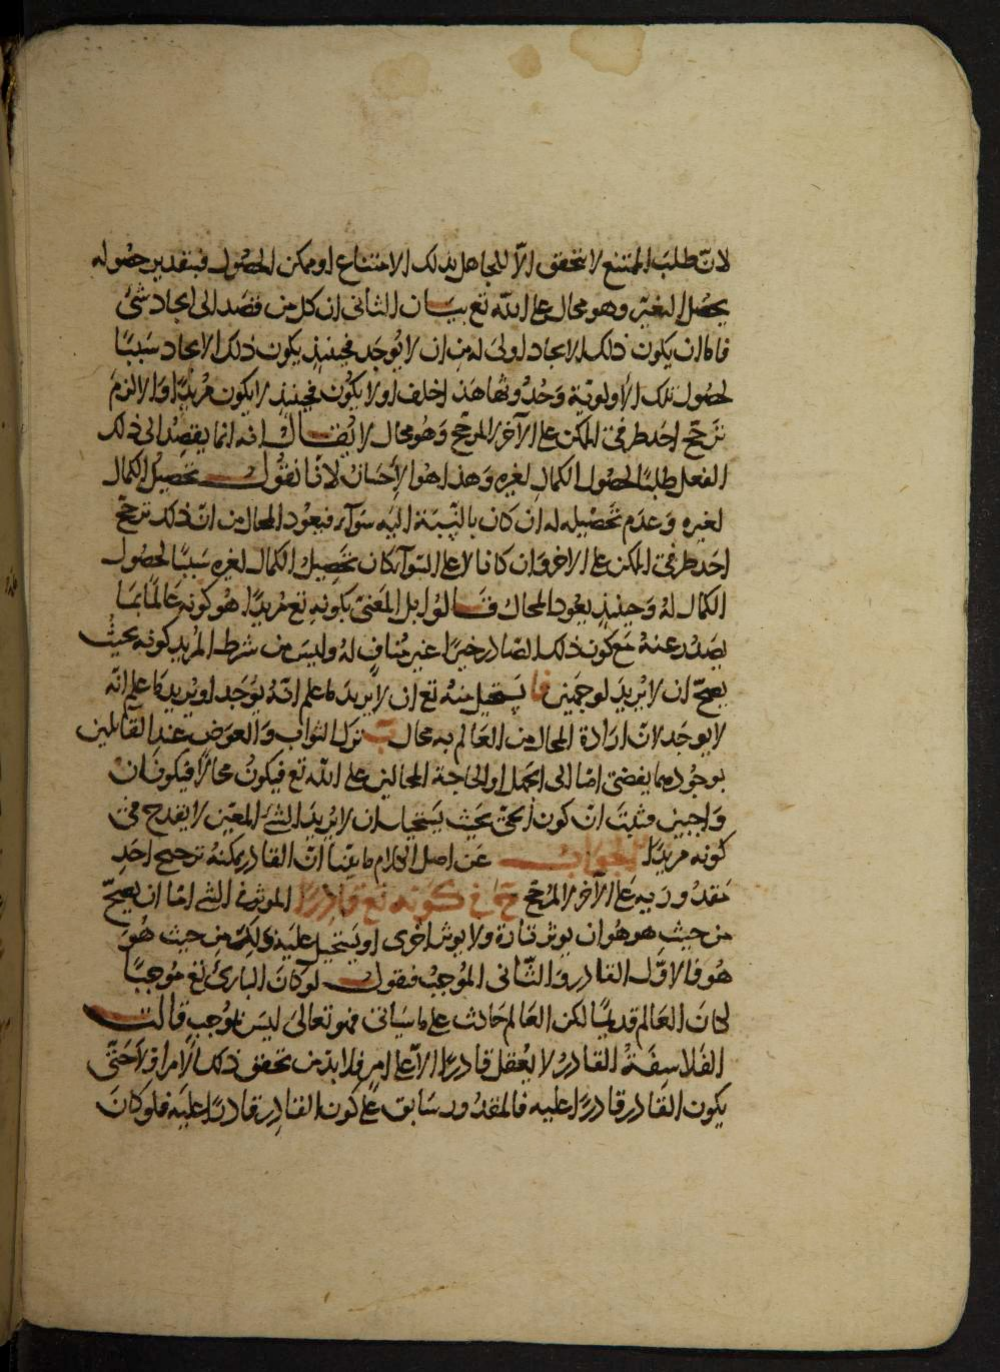 لانّ طلب الممتنع لا يتحقق الّا للجاهل بذلك الامتناع او ممكن الحصول فبتقدير حصوله
يحصل التغيّر وهو محال على الله تع بيان الثانى ان كل من قصد الى ايجاد شئ
فاما ان يكون ذلك الايجاد اولى له من ان لا يُوجد فحينئذٍ يكون ذلك الايجاد سَببًا
لحصول تلك الأولويّة وَحُدُوثها هَذا خلف او لا يكُون فحينئذٍ لا يكون مُريدًا والّا لزمَ
ترجّح احد طرفى الممكن على الآخر لا لمرجّح وَهُو محال لا يُقال انه انما يقصد الى ذلك
الفعل طلبًا لحصُول الكمال لغيره وَهذا هُوا لإحسَان لانّا نقوُل تحصيل الكمال
لغيره وَعدَم تحصيله له ان كان بالنّسبَة اليَه سَوآء فيعُود المحال من انّ ذلك ترجّح
احَد طرفى الممكن على الاخر وَان كانا لا على السّوآ كان تحصيل الكمال لغيره سَببًا لحصُول
الكمال لهُ وَحينئذٍ يعُود المحال قالوُا بل المعنىّ بكونهِ تع مُريدًا هُو كونه عَالمًا بمَا
يصدُر عنهُ مَع كون ذلك الصّادر خيرًا غير مُنافٍ لهُ وليسَ من شرط المُريد كونه بحيثُ
يصحّ ان لا يُريد لوجهَين ا يَستحيل منهُ تع ان لا يُريدَ ما علم انّهُ يُوجَد او يُريد ما علم انّه
لا يوجَد لانّ ارادة المحال من العَالم به محال ب ترك الثواب وَالعوَض عند القائلين
بوجُوبهما يفضى امّا الى الجهل او الحاجة المحالين على الله تع فيكونُ محالًا فيكونان
وَاجبين فثبتَ انّ كون الحىّ بحيث يَستحيل ان لا يُريدَ الشئَ المعيّن لا يقدح فى
كونه مريدًا الجوَاب عَن اصل الكلام ما بيّنا انّ القادر يمكنهُ ترجيح احَدِ
مَقدُورَيه عَلى الآخر لا لمرجّح فى كونه تع قادرًا المؤثر فى الشئ امّا ان يصحّ
من حيث هو هُو ان يؤثر تارة ولا يؤثر اخرى او يَستحيل عليَه ذلك من حيث هُوَ
هُو فالاوّل القادر وَالثّانى المُوجبُ فنقول لو كانَ البارئ تع مُوجبًا
لكانَ العَالم قديمًا لكن العَالم حَادث على ما سَيأتى فهو تعالى ليسَ بمُوجبٍ قالت
الفَلاسِفَةُ القادرُ لا يُعقل قادرًا الّا على امرٍ فلا بدّ من تحقق ذلك الامر اوّلًا حَتّى
يكون القَادر قادرًا عليه فالمقدُور سَابق عَلى كون القادِر قادرًا عليَه فلو كانَ